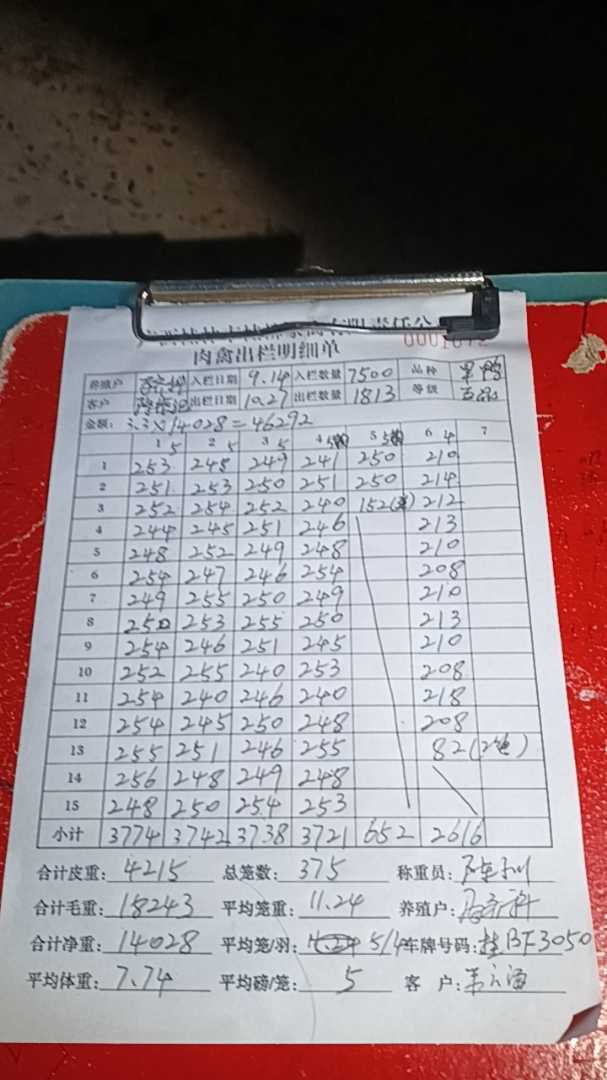 肉禽出栏明细单
养殖户 入栏日期 9.14 入栏数量 7500 品种
客户 出栏日期 10.27 出栏数量 1813 等级
金额: 3.3×14028=46292
1 5 2 5 3 5 4 5 5 6 4 7
1 253 248 249 241 250 210
2 251 253 250 251 250 214
3 252 254 252 240 152 212
4 244 245 251 246 213
5 248 252 249 248 210
6 254 247 246 254 208
7 249 255 250 249 210
8 250 253 255 250 213
9 254 246 251 245 210
10 252 255 240 253 208
11 254 240 246 240 218
12 254 245 250 248 208
13 255 251 246 255 82
14 256 248 249 248
15 248 250 254 253
小计 3774 3742 3738 3721 652 2616
合计皮重: 4215 总笼数: 375 称重员:
合计毛重: 18243 平均笼重: 11.24 养殖户:
合计净重: 14028 平均笼/羽: 5/4 车牌号码: 桂BF3050
平均体重: 7.74 平均磅/笼: 5 客 户: